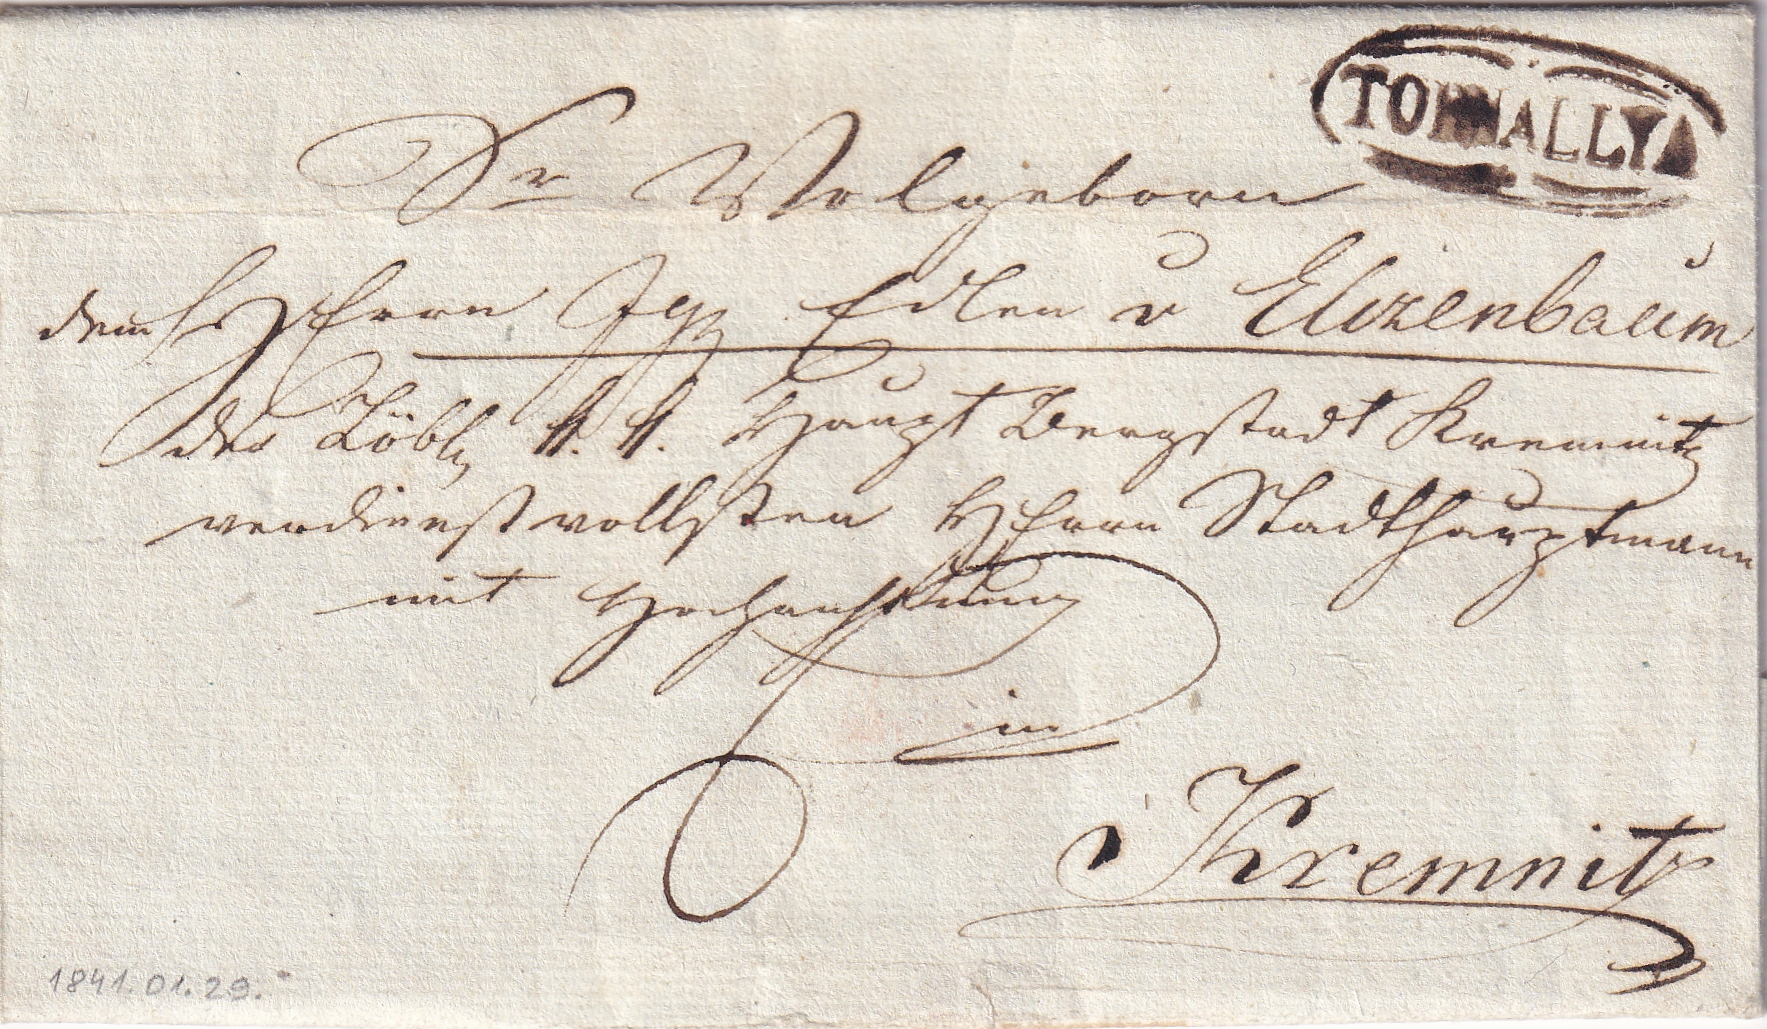 TORNALLYA
Sr Wolgeborn
dem Herrn Ign Edlen v Elizenbaum
der Löbl k. k. Haupt Bergstadt Kremnitz
verdienstvollsten Herrn Stadthauptmann
mit Hochachtung
in
Kremnitz
1841.01.29.